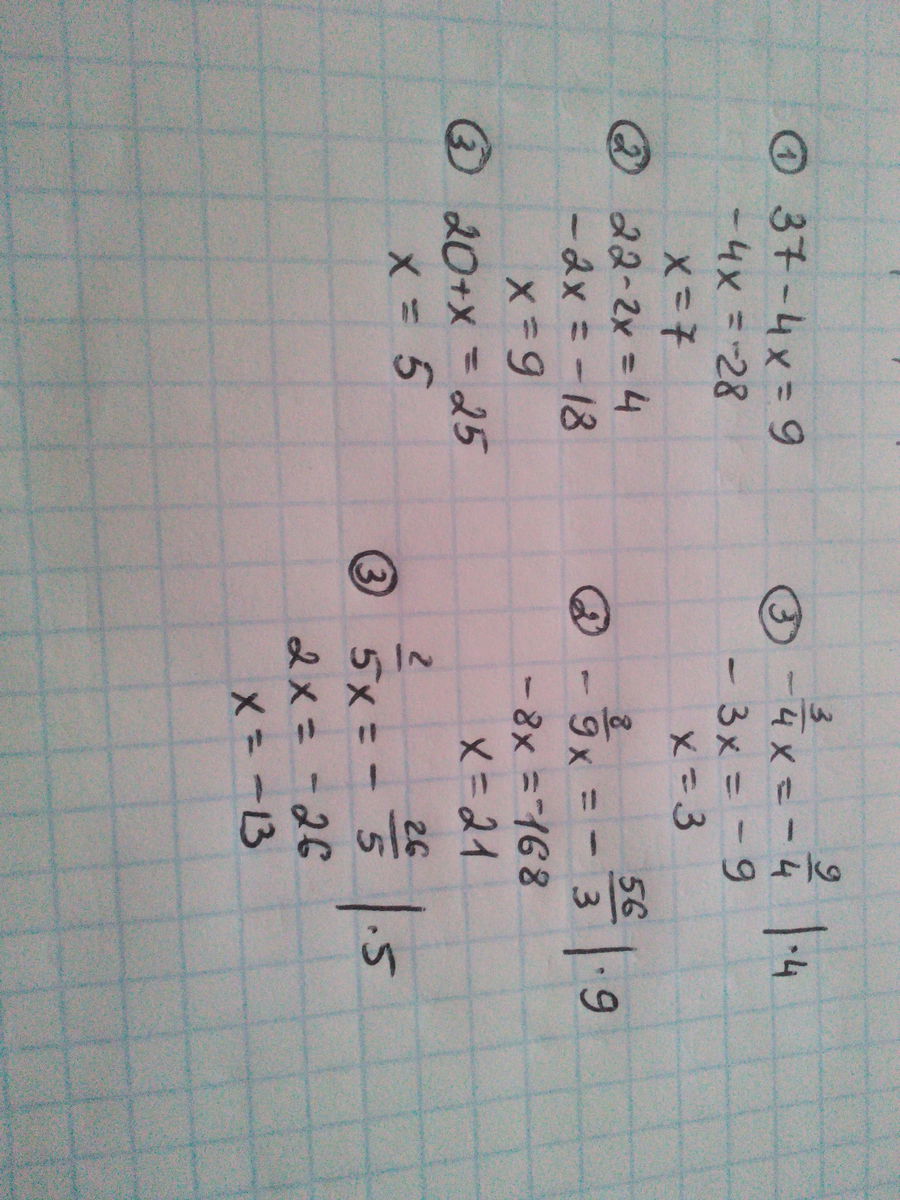 ① 37 - 4x = 9
-4x = -28
x = 7
② 22 - 2x = 4
-2x = -18
x = 9
③ 20 + x = 25
x = 5
① -3/4 x = - 9/4 | · 4
-3x = -9
x = 3
② - 8/9 x = - 56/3 | · 9
-8x = -168
x = 21
③ 2/5 x = - 26/5 | · 5
2x = -26
x = -13